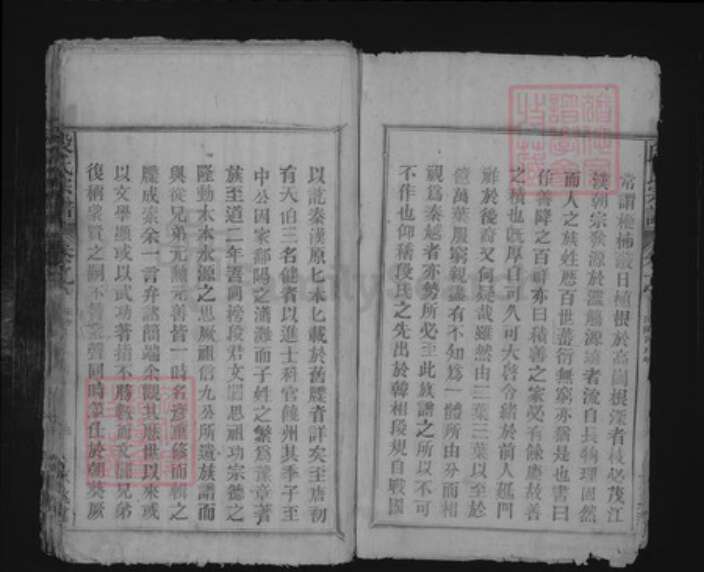 常謂楩楠蔽日植根於高岡根深者枝必茂江
漢朝宗發源於濫觴源遠者流自長物理固然
而人之族姓歷百世蕃衍無窮亦猶是也書曰
作善降之百祥亦曰積善之家必有餘慶故善
之積也既厚自可久可大啓令緒於前人延門
祚於後裔又何疑哉雖然由二葉三葉以至於
億萬葉服窮親盡有不知為一體所由分而相
視為秦越者亦勢所必至此族譜之所以不可
不作也仰稽段氏之先出於韓相段規自戰國
以訖秦漢原原本本載於舊牒者詳矣至唐初
有天伯三名健者以進士科官饒州其季子至
中公因家鄱陽之 面子姓之繁為豫章著
族至道二年 同榜段君文 思祖功宗德之
隆動木本水源之思厥祖信九公所遺族譜而
與從兄弟元勲元善皆一時名 重修而輯之
牒成索余一言弁諸簡端余觀其歷世以來或
以文學顯或以武功著指不勝數而文 兄弟
復稱眾賢之嗣不 聲同時 仕於朝 厥
段氏宗譜